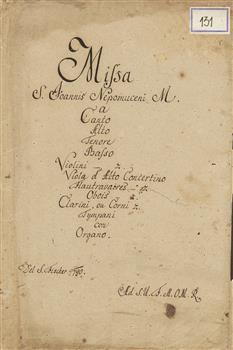 131
Missa
S. Joannis Nepomuceni. M.
a
Canto
Alto
Tenore
Basso
Violini 2.
Viola d'Alto Concertino
Flautravaires 2.
Obois 2.
Clarini, ou Corni 2.
Tympani
con
Organo.
Del S.
Ad S.U.B.M.O.M.R.